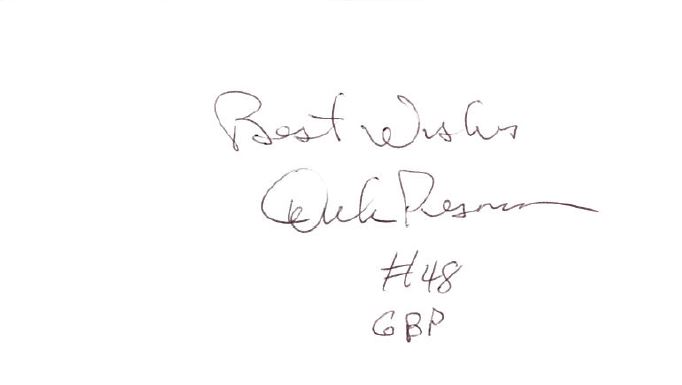 Best Wishes
Dick Pesonen
#48
GBP